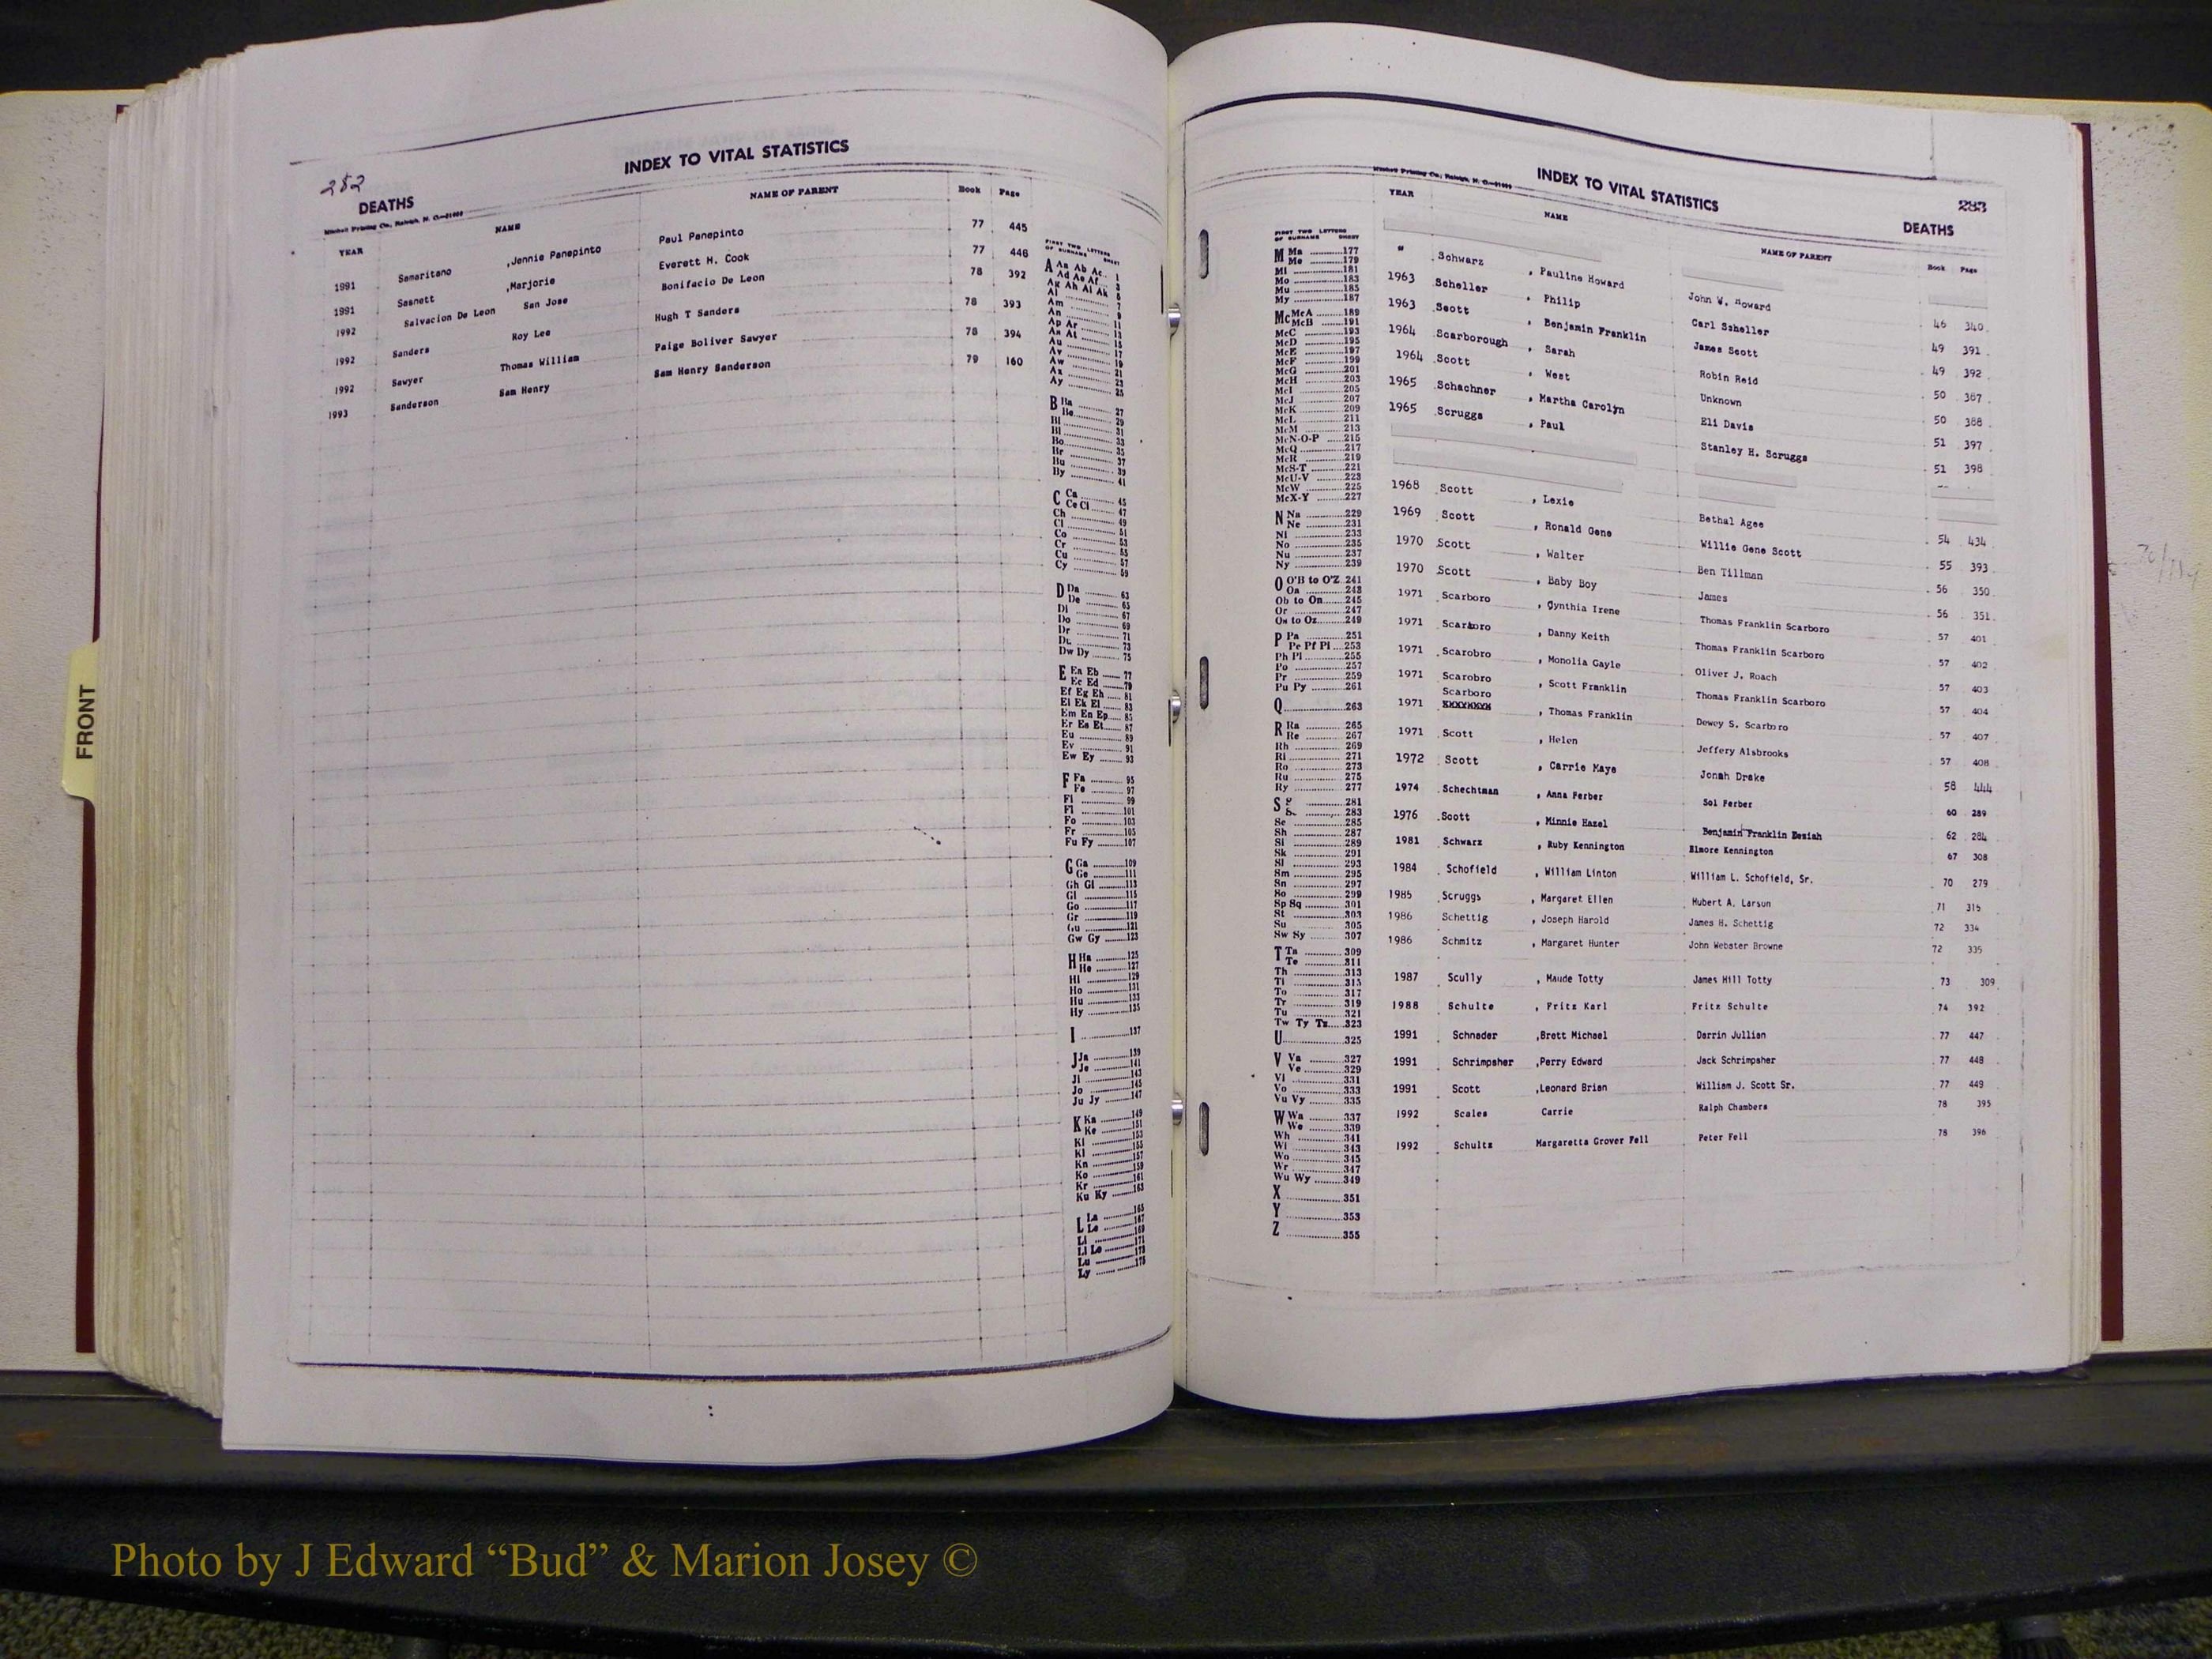 FRONT
282
INDEX TO VITAL STATISTICS
DEATHS
Mitchell Printing Co., Raleigh, N. C.
YEAR NAME NAME OF PARENT Book Page
1991 Samaritano ,Jennie Panepinto Paul Panepinto 77 445
1991 Sasnett ,Marjorie Everett H. Cook 77 446
1992 Salvacion De Leon San Jose Bonifacio De Leon 78 392
1992 Sanders Roy Lee Hugh T Sanders 78 393
1992 Sawyer Thomas William Paige Boliver Sawyer 78 394
1993 Sanderson Sam Henry Sam Henry Sanderson 79 160
FIRST TWO LETTERS
OF SURNAME SHEET
A Aa Ab Ac 1
Ad Ae Af 3
Ag Ah Ai Ak 5
Al 7
Am 9
An 11
Ap Ar 13
As At 15
Au 17
Av 19
Aw 21
Ax 23
Ay 25
B Ba 27
Be 29
Bi 31
Bl 33
Bo 35
Br 37
Bu 39
By 41
C Ca 45
Ce Ci 47
Ch 49
Cl 51
Co 53
Cr 55
Cu 57
Cy 59
D Da 63
De 65
Di 67
Do 69
Dr 71
Du 73
Dw Dy 75
E Ea Eb 77
Ec Ed 79
Ef Eg Eh 81
Ei Ek El 83
Em En Ep 85
Er Es Et 87
Eu 89
Ev 91
Ew Ey 93
F Fa 95
Fe 97
Fi 99
Fl 101
Fo 103
Fr 105
Fu Fy 107
G Ga 109
Ge 111
Gh Gi 113
Gl 115
Go 117
Gr 119
Gu 121
Gw Gy 123
H Ha 125
He 127
Hi 129
Ho 131
Hu 133
Hy 135
I 137
J Ja 139
Je 141
Ji 143
Jo 145
Ju Jy 147
K Ka 149
Ke 151
Ki 153
Kl 155
Kn 157
Ko 159
Kr 161
Ku Ky 163
L La 165
Le 167
Li 169
Ll Lo 171
Lu 173
Ly 175
INDEX TO VITAL STATISTICS
283
DEATHS
Mitchell Printing Co., Raleigh, N. C.
YEAR NAME NAME OF PARENT Book Page
FIRST TWO LETTERS
OF SURNAME SHEET
M Ma 177
Me 179
Mi 181
Mo 183
Mu 185
My 187
Mc McA 189
McB 191
McC 193
McD 195
McE 197
McF 199
McG 201
McH 203
McI 205
McJ 207
McK 209
McL 211
McM 213
McN-O-P 215
McQ 217
McR 219
McS-T 221
McU-V 223
McW 225
McX-Y 227
N Na 229
Ne 231
Ni 233
No 235
Nu 237
Ny 239
O O'B to O'Z 241
Oa 243
Ob to On 245
Or 247
Os to Oz 249
P Pa 251
Pe Pf Pl 253
Ph Pi 255
Po 257
Pr 259
Pu Py 261
Q 263
R Ra 265
Re 267
Rh 269
Ri 271
Ro 273
Ru 275
Ry 277
S 281
283
Se 285
Sh 287
Si 289
Sk 291
Sl 293
Sm 295
Sn 297
So 299
Sp Sq 301
St 303
Su 305
Sw Sy 307
T Ta 309
Te 311
Th 313
Ti 315
To 317
Tr 319
Tu 321
Tw Ty Tz 323
U 325
V Va 327
Ve 329
Vi 331
Vo 333
Vu Vy 335
W Wa 337
We 339
Wh 341
Wi 343
Wo 345
Wr 347
Wu Wy 349
X 351
Y 353
Z 355
" Schwarz , Pauline Howard John W. Howard 46 340
1963 Scheller , Philip Carl Scheller 49 391
1963 Scott , Benjamin Franklin James Scott 49 392
1964 Scarborough , Sarah Robin Reid 50 387
1964 Scott , West Unknown 50 388
1965 Schachner , Martha Carolyn Eli Davis 51 397
1965 Scruggs , Paul Stanley H. Scruggs 51 398
1968 Scott , Lexie Bethal Agee 54 434
1969 Scott , Ronald Gene Willie Gene Scott 55 393
1970 Scott , Walter Ben Tillman 56 350
1970 Scott , Baby Boy James 56 351
1971 Scarboro , Cynthia Irene Thomas Franklin Scarboro 57 401
1971 Scarboro , Danny Keith Thomas Franklin Scarboro 57 402
1971 Scarobro , Monolia Gayle Oliver J. Roach 57 403
1971 Scarobro , Scott Franklin Thomas Franklin Scarboro 57 404
Scarboro
1971 , Thomas Franklin Dewey S. Scarboro 57 407
1971 Scott , Helen Jeffery Alsbrooks 57 408
1972 Scott , Carrie Maye Jonah Drake 58 444
1974 Schechtman , Anna Ferber Sol Ferber 60 289
1976 Scott , Minnie Hazel Benjamin Franklin 62 284
1981 Schwarz , Ruby Kennington Elmore Kennington 67 308
1984 Schofield , William Linton William L. Schofield, Sr. 70 279
1985 Scruggs , Margaret Ellen Hubert A. Larson 71 315
1986 Schettig , Joseph Harold James H. Schettig 72 334
1986 Schmitz , Margaret Hunter John Webster Browne 72 335
1987 Scully , Maude Totty James Hill Totty 73 309
1988 Schulte , Fritz Karl Fritz Schulte 74 392
1991 Schnader ,Brett Michael Darrin Jullian 77 447
1991 Schrimpsher ,Perry Edward Jack Schrimpsher 77 448
1991 Scott ,Leonard Brian William J. Scott Sr. 77 449
1992 Scales Carrie Ralph Chambers 78 395
1992 Schultz Margaretta Grover Fell Peter Fell 78 396
Photo by J Edward “Bud” & Marion Josey ©